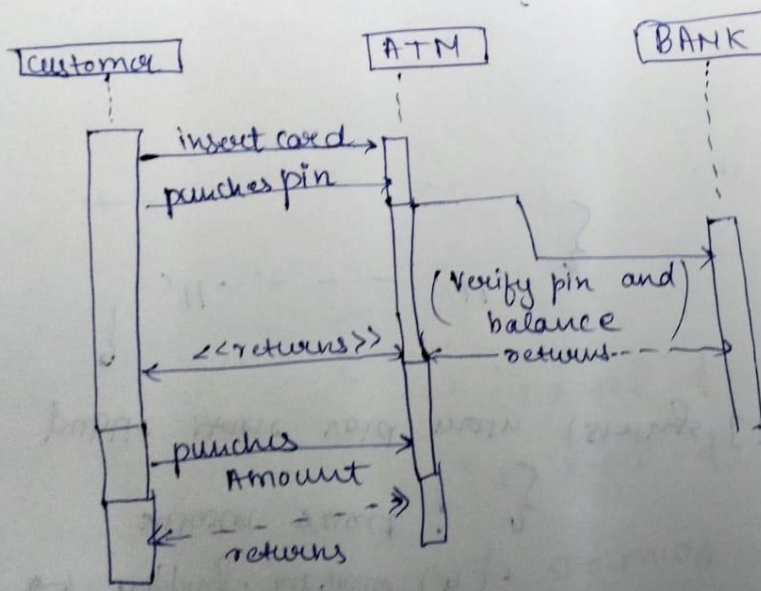 Customer
ATM
BANK
insert card
punches pin
(Verify pin and
balance)
<<returns>>
returns
punches
Amount
returns